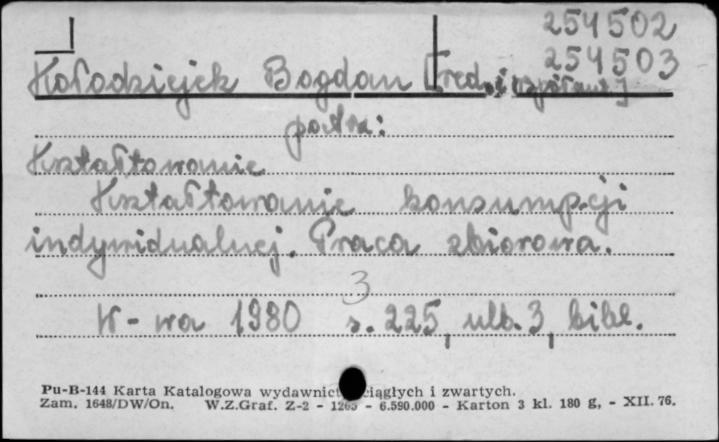 254502
254503
Kołodziejek Bogdan [red. i współaut.]
patrz:
Kształtowanie
Kształtowanie konsumpcji
indywidualnej. Praca zbiorowa.
3
W-wa 1980 s. 225, ulb. 3, bibl.
Pu-B-144 Karta Katalogowa wydawnict ciągłych i zwartych.
Zam. 1648/DW/On. W.Z.Graf. Z-2 - 1265 - 6.590.000 - Karton 3 kl. 180 g, - XII. 76.